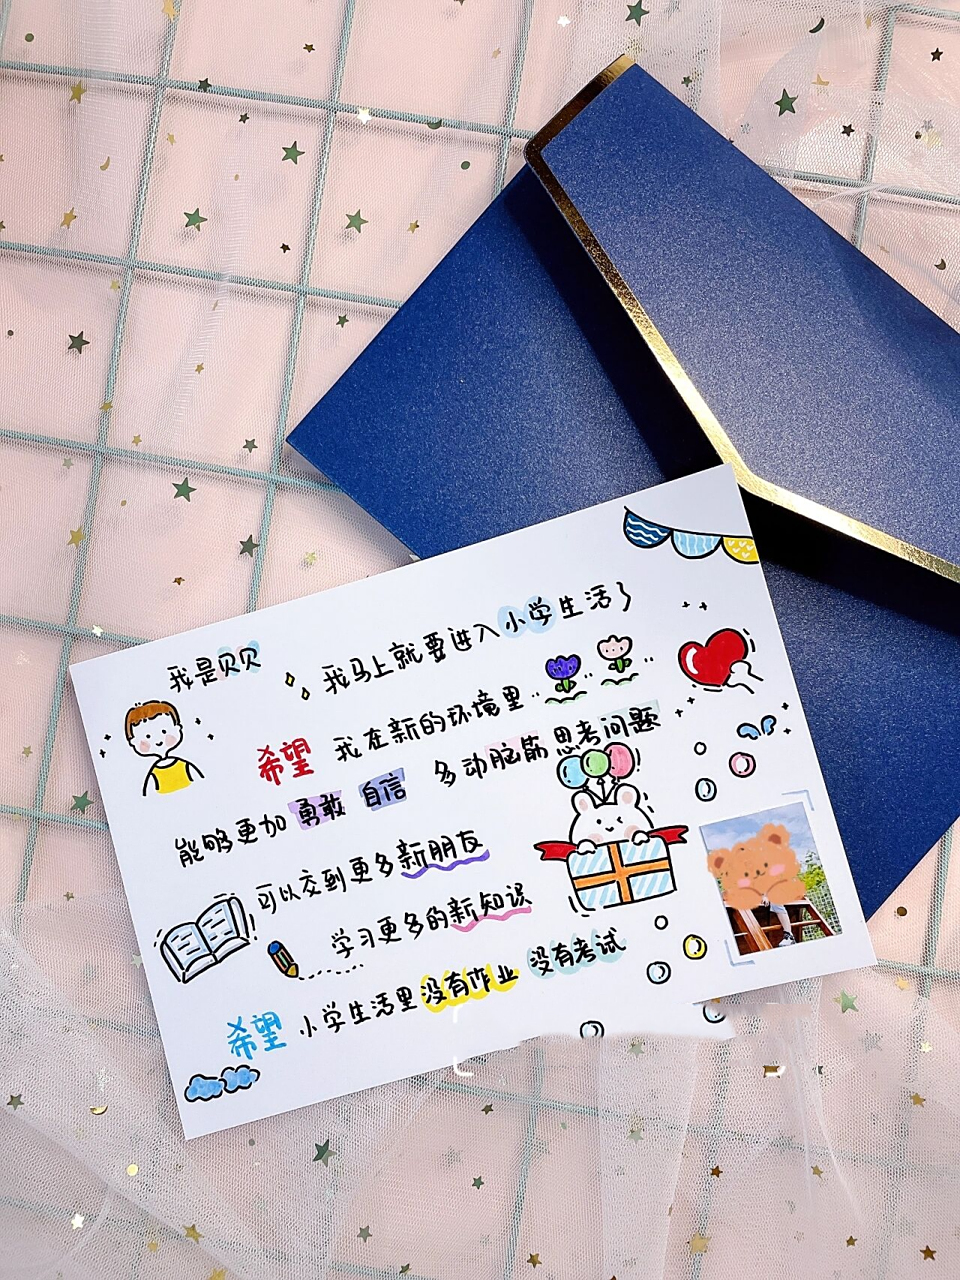 我是贝贝
我马上就要进入小学生活了
希望 我在新的环境里
能够更加勇敢 自信 多动脑筋 思考问题
可以交到更多新朋友
学习更多的新知识
希望 小学生活里没有作业 没有考试